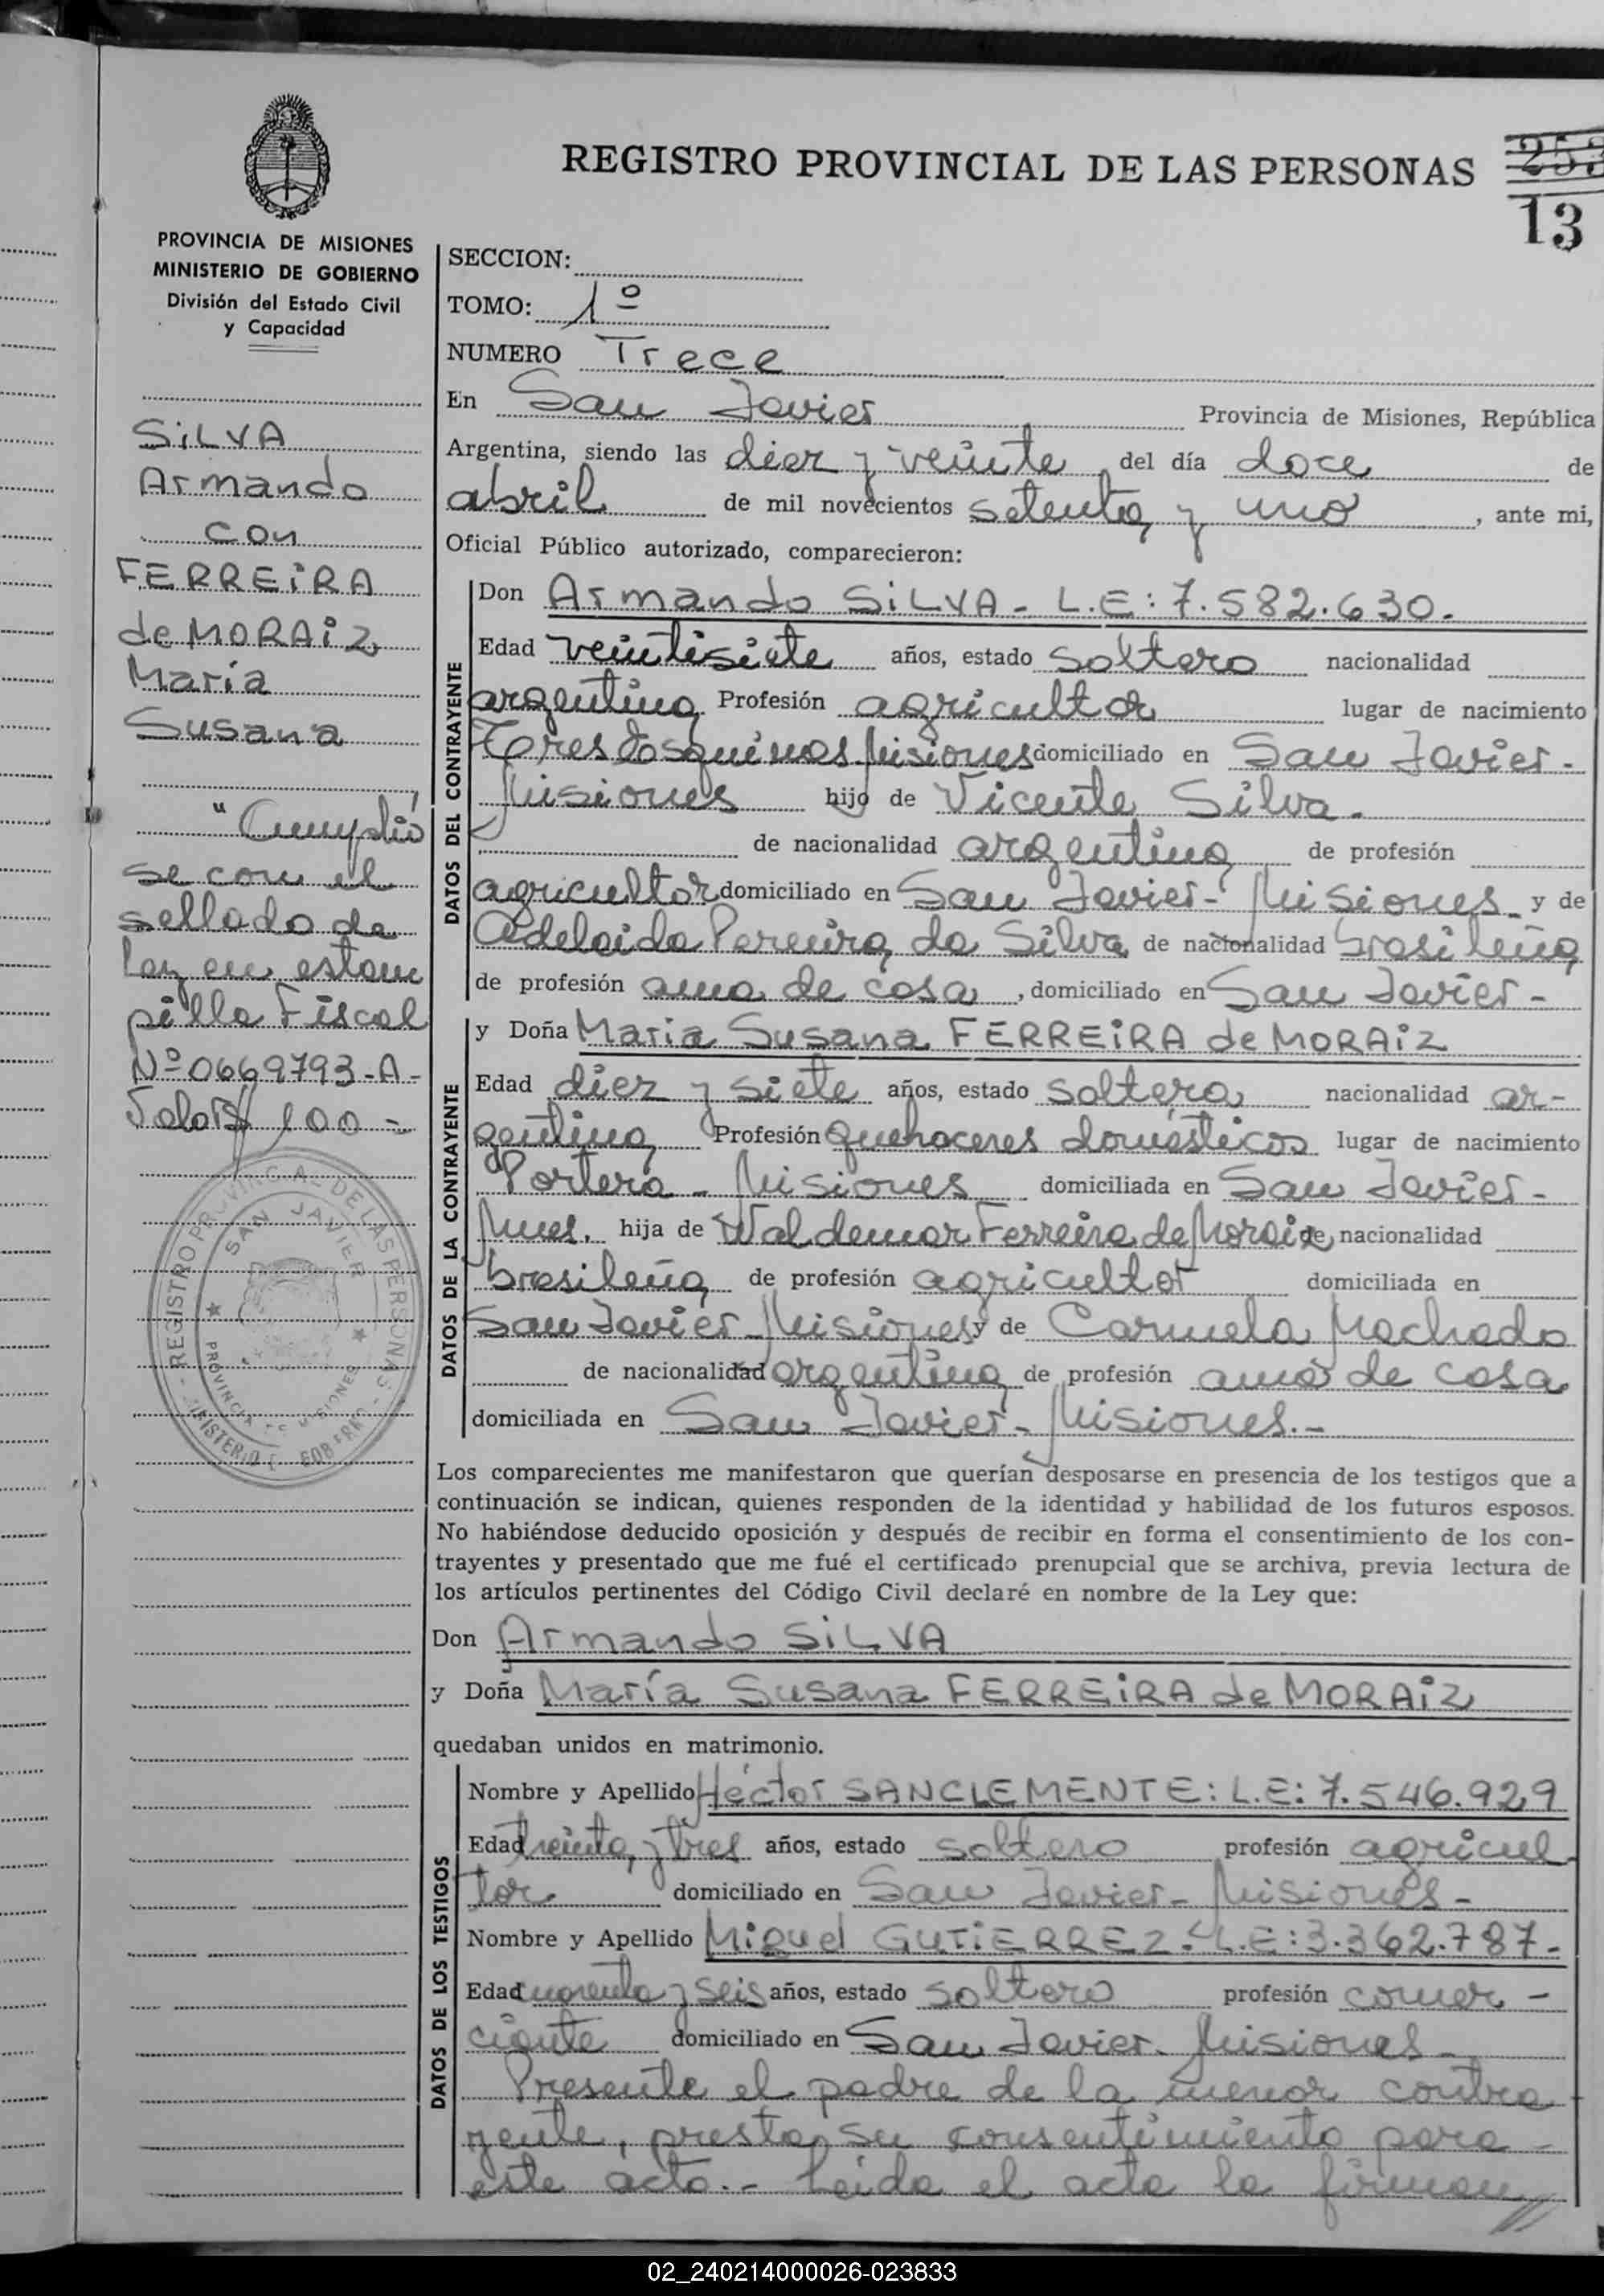 REGISTRO PROVINCIAL DE LAS PERSONAS
253
13
PROVINCIA DE MISIONES
MINISTERIO DE GOBIERNO
División del Estado Civil
y Capacidad
SiLVA
Armando
con
FERREiRA
de MORAiZ
María
Susana
"Cumplió
se con el
sellado de
Ley en estam
pilla Fiscal
Nº 0669793-A-
Valor $ 100 -
REGISTRO PROVINCIAL DE LAS PERSONAS
SAN JAVIER
PROVINCIA DE MISIONES
SECCION:
TOMO: 1º
NUMERO Trece
En San Javier Provincia de Misiones, República
Argentina, siendo las diez y veinte del día doce de
abril de mil novecientos setenta y uno, ante mi,
Oficial Público autorizado, comparecieron:
DATOS DEL CONTRAYENTE
Don Armando SiLVA - L.E: 7.582.630.
Edad veintisiete años, estado soltero nacionalidad
argentina Profesión agricultor lugar de nacimiento
Tres Esquinas Misiones domiciliado en San Javier -
Misiones hijo de Vicente Silva.
de nacionalidad argentina de profesión
agricultor domiciliado en San Javier - Misiones - y de
Adelaida Pereira da Silva de nacionalidad brasileña
de profesión ama de casa, domiciliado en San Javier -
DATOS DE LA CONTRAYENTE
y Doña Maria Susana FERREiRA de MORAiZ
Edad diez y siete años, estado soltera nacionalidad ar-
gentina Profesión quehaceres domésticos lugar de nacimiento
Portera - Misiones domiciliada en San Javier -
Mnes. hija de Waldemar Ferreira de Moraiz de nacionalidad
brasileña de profesión agricultor domiciliada en
San Javier - Misiones y de Carmela Machado
de nacionalidad argentina de profesión ama de casa
domiciliada en San Javier - Misiones. -
Los comparecientes me manifestaron que querían desposarse en presencia de los testigos que a
continuación se indican, quienes responden de la identidad y habilidad de los futuros esposos.
No habiéndose deducido oposición y después de recibir en forma el consentimiento de los con-
trayentes y presentado que me fué el certificado prenupcial que se archiva, previa lectura de
los artículos pertinentes del Código Civil declaré en nombre de la Ley que:
Don Armando SiLVA
y Doña María Susana FERREiRA de MORAiZ
quedaban unidos en matrimonio.
DATOS DE LOS TESTIGOS
Nombre y Apellido Héctor SANCLEMENTE: L.E: 7.546.929
Edad treinta y tres años, estado soltero profesión agricul
tor domiciliado en San Javier - Misiones -
Nombre y Apellido Miguel GUTiERREZ - L.E: 3.362.787-
Edad cuarenta y seis años, estado soltero profesión comer -
ciante domiciliado en San Javier - Misiones -
Presente el padre de la menor contra
yente, presta su consentimiento para -
este acto. - Leida el acta la firman //
02_240214000026-023833